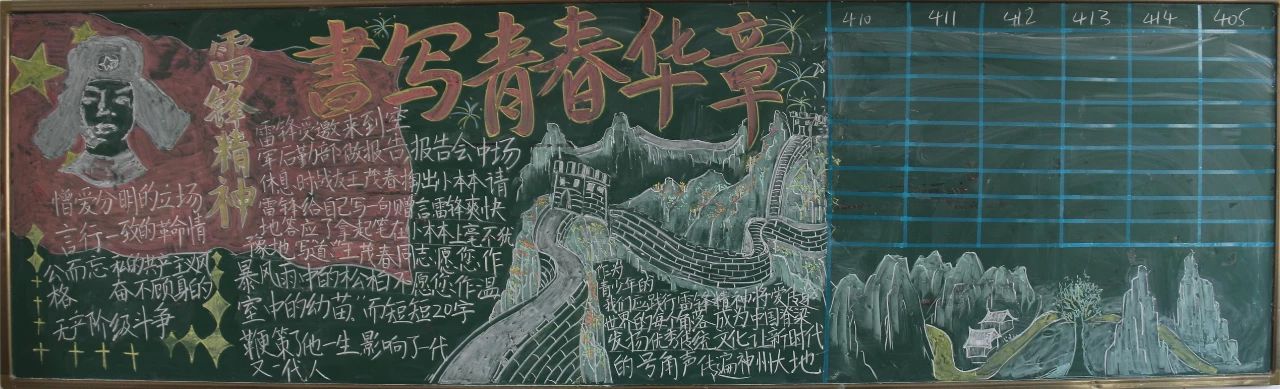 書写青春华章
雷锋精神
憎爱分明的立场
言行一致的革命情
公而忘私的共产主义风
格 奋不顾身的
无产阶级斗争
雷锋受邀来到空
军后勤部做报告,报告会中场
休息时战友王茂春掏出小本本请
雷锋给自己写一句赠言雷锋爽快
地答应了拿起笔在小本本上毫不犹
豫地写道:"王茂春同志,愿您作
暴风雨中的松柏不愿您作温
室中的幼苗"而短短20字
鞭策了他一生,影响了一代
又一代人
作为
青少年的
我们应践行雷锋精神将爱
世界的每个角落 成为中国脊梁
发扬优秀传统文化让新时代
的号角声传遍神州大地
410 411 412 413 414 405